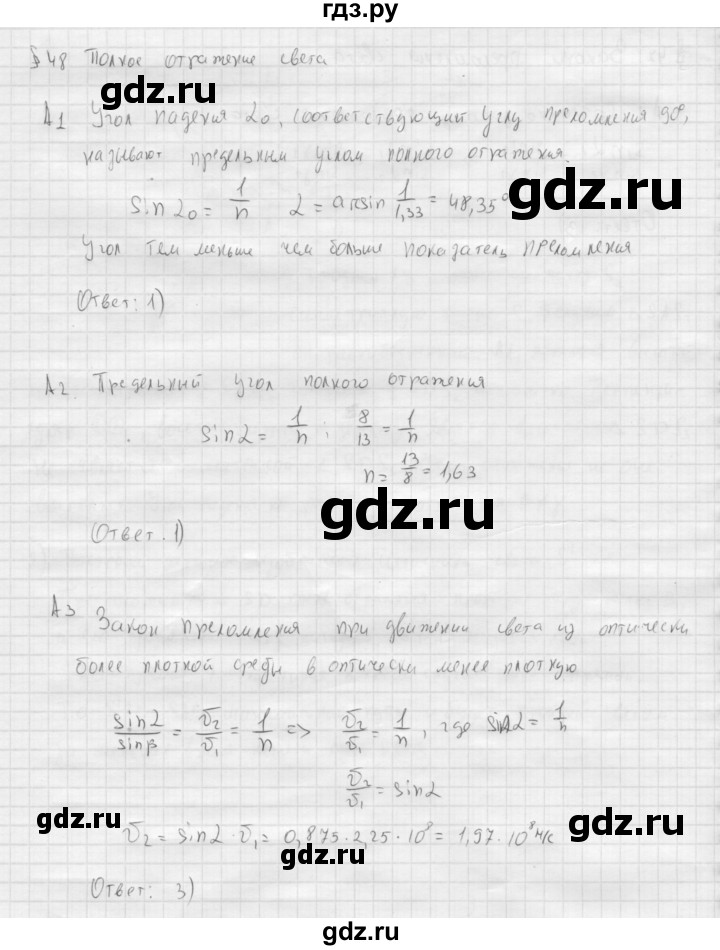 гдз.ру
§ 48 Полное отражение света
gdz.ru
А1 Угол падения α₀, соответствующий углу преломления 90°,
называют предельным углом полного отражения.
sin α₀ = 1/n   α = arcsin 1/1,33 = 48,35°
gdz.ru
Угол тем меньше чем больше показатель преломления
gdz.ru
Ответ: 1)
А2. Предельный угол полного отражения
gdz.ru
sin α = 1/n ; 8/13 = 1/n
n = 13/8 = 1,63
gdz.ru
Ответ. 1)
А3 Закон преломления при движении света из оптически
более плотной среды в оптически менее плотную
gdz.ru
sin α/sin β = υ₂/υ₁ = 1/n => υ₂/υ₁ = 1/n, где sin α = 1/n
υ₂/υ₁ = sin α
gdz.ru
υ₂ = sin α · υ₁ = 0,875 · 2,25 · 10⁸ = 1,97 · 10⁸ м/с
gdz.ru
Ответ: 3)
gdz.ru